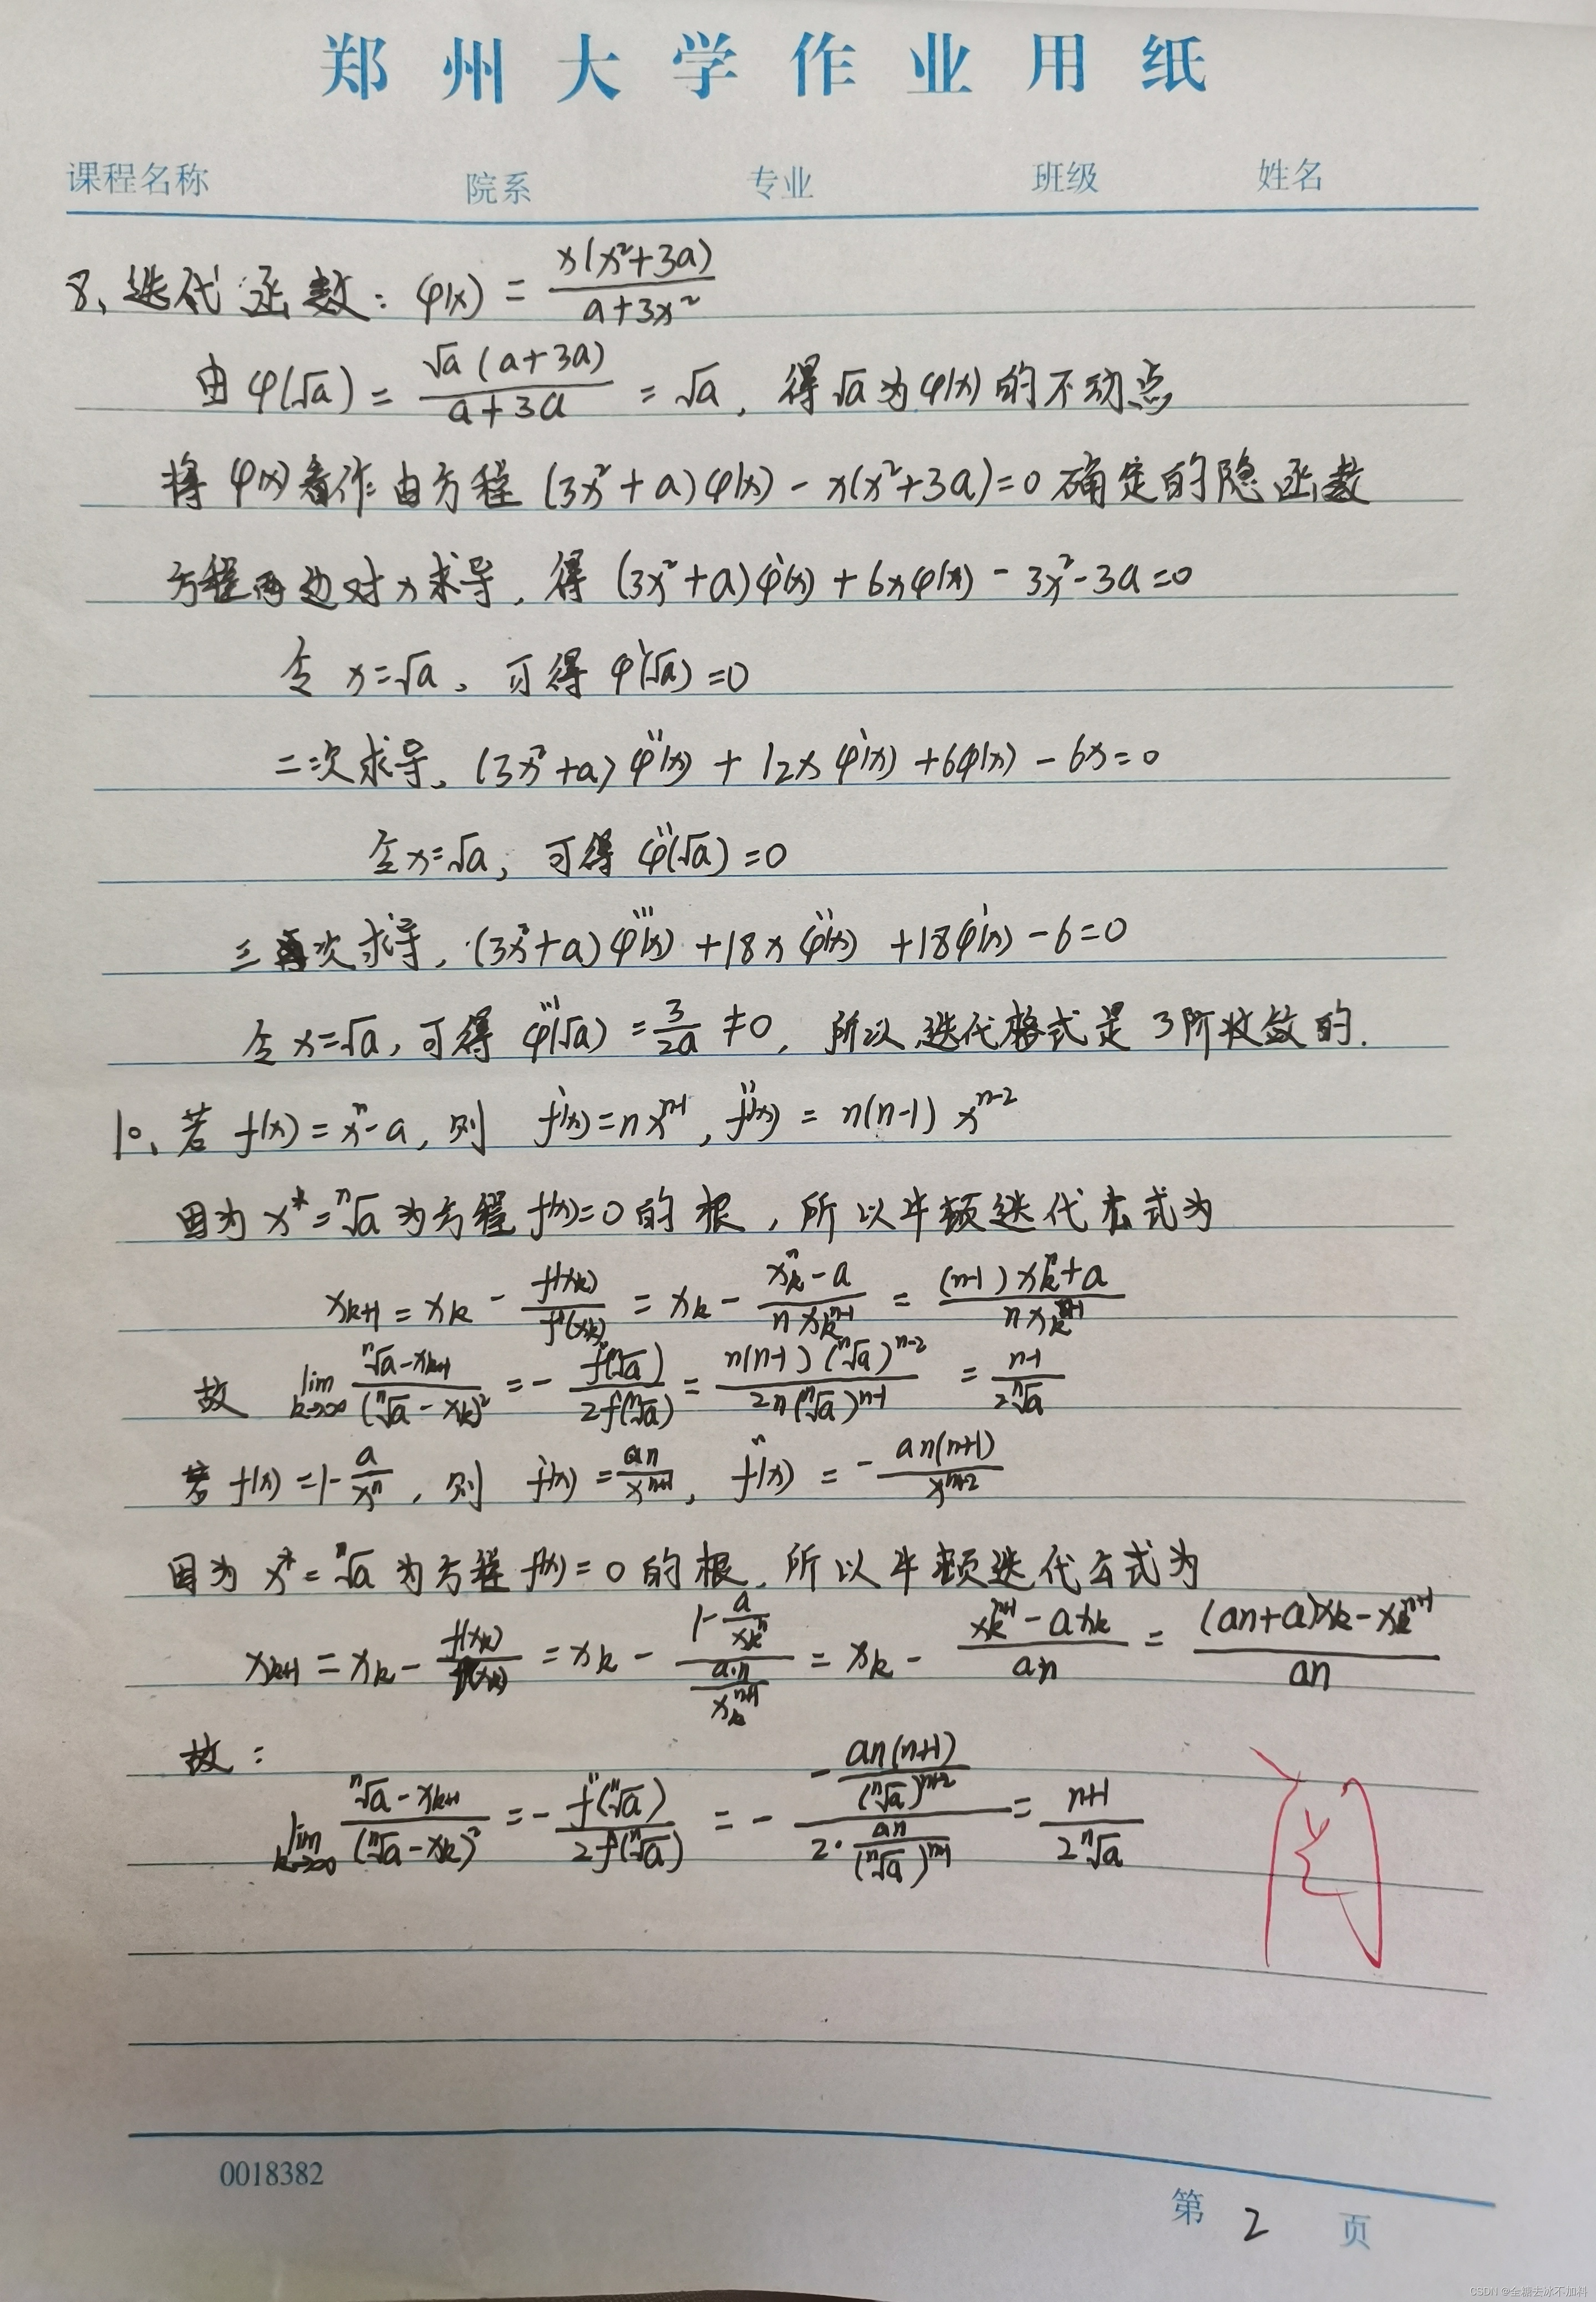 郑州大学作业用纸
课程名称 院系 专业 班级 姓名
8、迭代函数：φ(x) = x(x²+3a) / (a+3x²)
由 φ(√a) = √a(a+3a) / (a+3a) = √a，得√a为φ(x)的不动点
将φ(x)看作由方程 (3x²+a)φ(x) - x(x²+3a)=0 确定的隐函数
方程两边对x求导，得 (3x²+a)φ'(x) + 6xφ(x) - 3x²-3a=0
令 x=√a，可得 φ'(√a)=0
二次求导，(3x²+a)φ''(x) + 12xφ'(x) + 6φ(x) - 6x=0
令x=√a，可得 φ''(√a)=0
三次求导，(3x²+a)φ'''(x) + 18xφ''(x) + 18φ'(x) - 6=0
令x=√a，可得 φ'''(√a) = 3/(2a) ≠0，所以迭代格式是3阶收敛的.
10、若 f(x)=xⁿ-a，则 f'(x)=nxⁿ⁻¹，f''(x) = n(n-1)xⁿ⁻²
因为 x*=ⁿ√a 为方程f(x)=0的根，所以牛顿迭代公式为
x_{k+1} = x_k - f(x_k)/f'(x_k) = x_k - (x_kⁿ-a)/(n x_kⁿ⁻¹) = ((n-1)x_kⁿ+a)/(n x_kⁿ⁻¹)
故 lim_{k→∞} (ⁿ√a-x_{k+1})/(ⁿ√a-x_k)² = - f''(ⁿ√a)/(2f'(ⁿ√a)) = n(n-1)(ⁿ√a)ⁿ⁻²/(2n(ⁿ√a)ⁿ⁻¹) = (n-1)/(2ⁿ√a)
若 f(x)=1-a/xⁿ，则 f'(x)=an/xⁿ⁺¹，f''(x) = -an(n+1)/xⁿ⁺²
因为 x*=ⁿ√a 为方程f(x)=0的根，所以牛顿迭代公式为
x_{k+1} = x_k - f(x_k)/f'(x_k) = x_k - (1-a/x_kⁿ)/(a·n/x_kⁿ⁺¹) = x_k - (x_kⁿ⁺¹-ax_k)/(an) = ((an+a)x_k-x_kⁿ⁺¹)/(an)
故：
lim_{k→∞} (ⁿ√a-x_{k+1})/(ⁿ√a-x_k)² = - f''(ⁿ√a)/(2f'(ⁿ√a)) = - (-an(n+1)/(ⁿ√a)ⁿ⁺²)/(2·an/(ⁿ√a)ⁿ⁺¹) = (n+1)/(2ⁿ√a)
阅
0018382
第 2 页
CSDN @全糖去冰不加料